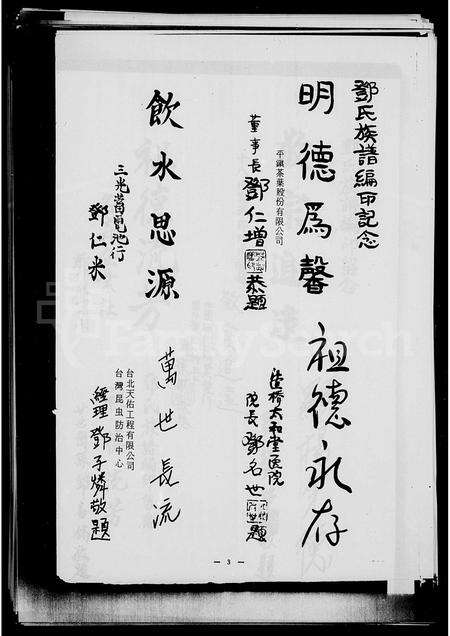 鄧氏族譜編印記念
明德為馨
平鎮茶葉股份有限公司
董事長 鄧仁增 恭題
祖德永存
太和堂医院
院長 鄧名世 題
飲水思源
三光蓄電池行
鄧仁米
萬世長流
台北天佑工程有限公司
台灣昆虫防治中心
經理 鄧子燐敬題
— 3 —
FamilySearch